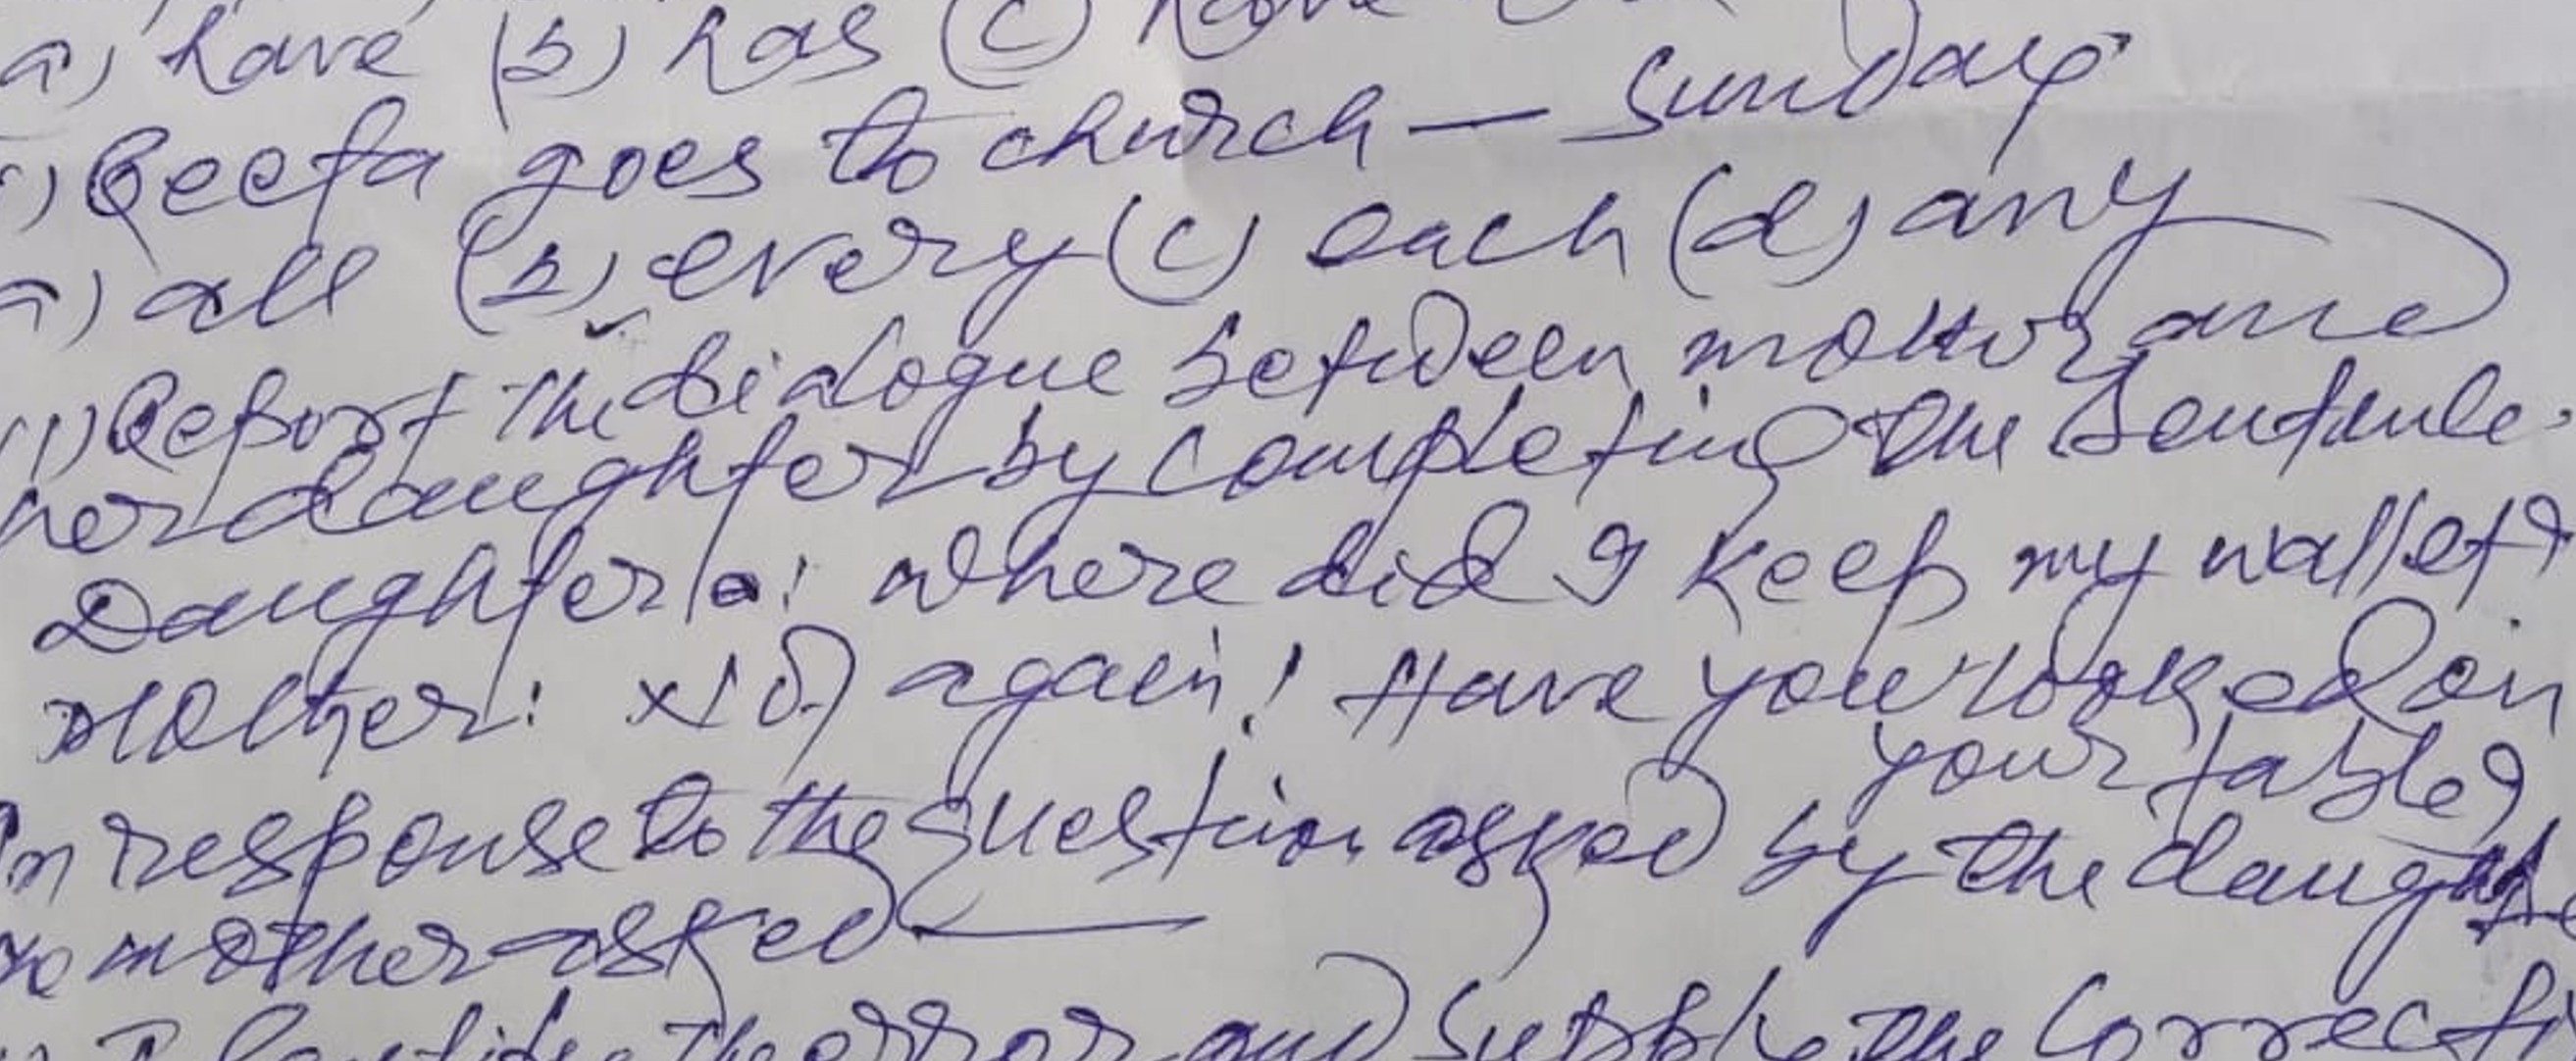 a) have (b) has (c) have
) Reeta goes to church — Sunday
a) all (b) every (c) each (d) any
(1) Report the dialogue between mother and
her daughter by completing the sentence.
Daughter: where did I keep my wallet?
Mother: Not again! Have you looked on
your table?
In response to the question asked by the daughter
mother asked —
Identify the error and supply the correct